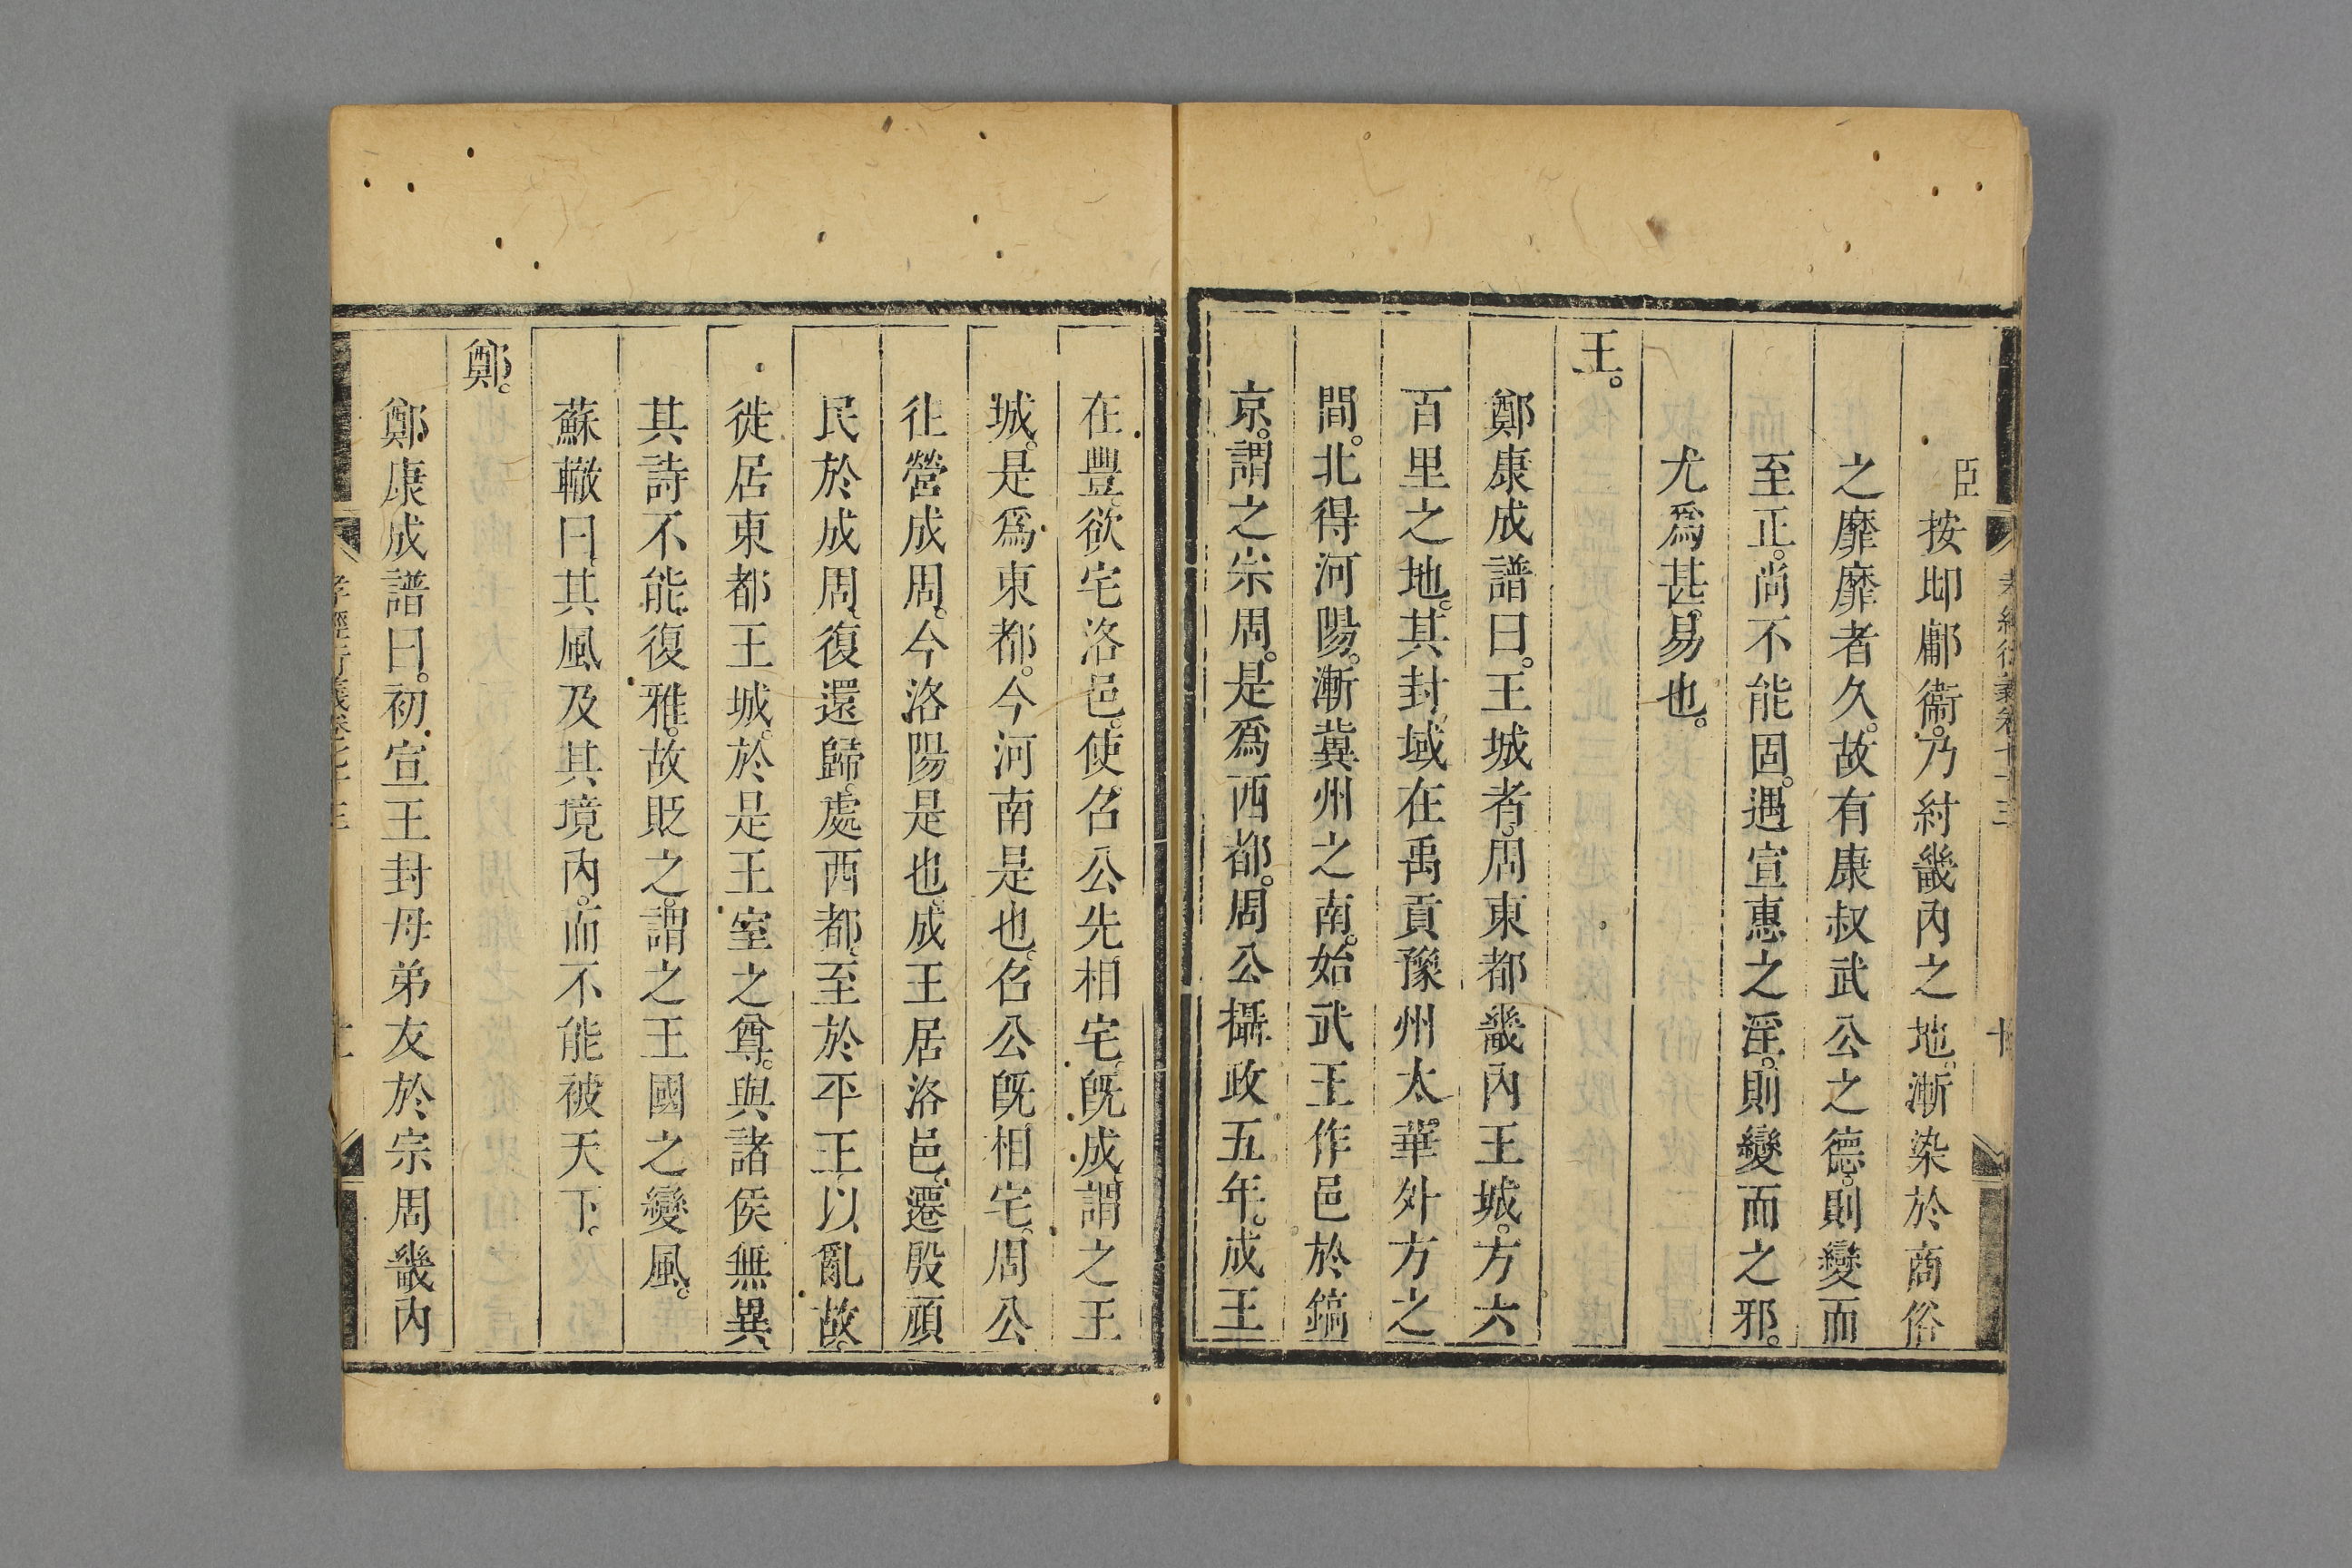 臣按邶鄘衞。乃紂畿內之地。漸染於商俗
之靡靡者久。故有康叔武公之德。則變而
至正。尚不能固。遇宣惠之淫。則變而之邪。
尤爲甚。易也。
王。
鄭康成譜曰。王城者。周東都畿內王城。方六
百里之地。其封域在禹貢豫州太華外方之
間。北得河陽。漸冀州之南。始武王作邑於鎬
京。謂之宗周。是爲西都。周公攝政五年。成王
在豐。欲宅洛邑。使召公先相宅。旣成。謂之王
城。是爲東都。今河南是也。召公旣相宅。周公
徃營成周。今洛陽是也。成王居洛邑。遷殷頑
民於成周。復還歸。處西都。至於平王。以亂故。
徙居東都王城。於是王室之尊。與諸侯無異。
其詩不能復雅。故貶之。謂之王國之變風。
蘇轍曰。其風及其境內。而不能被天下。
鄭。
鄭康成譜曰。初。宣王封母弟友於宗周畿內